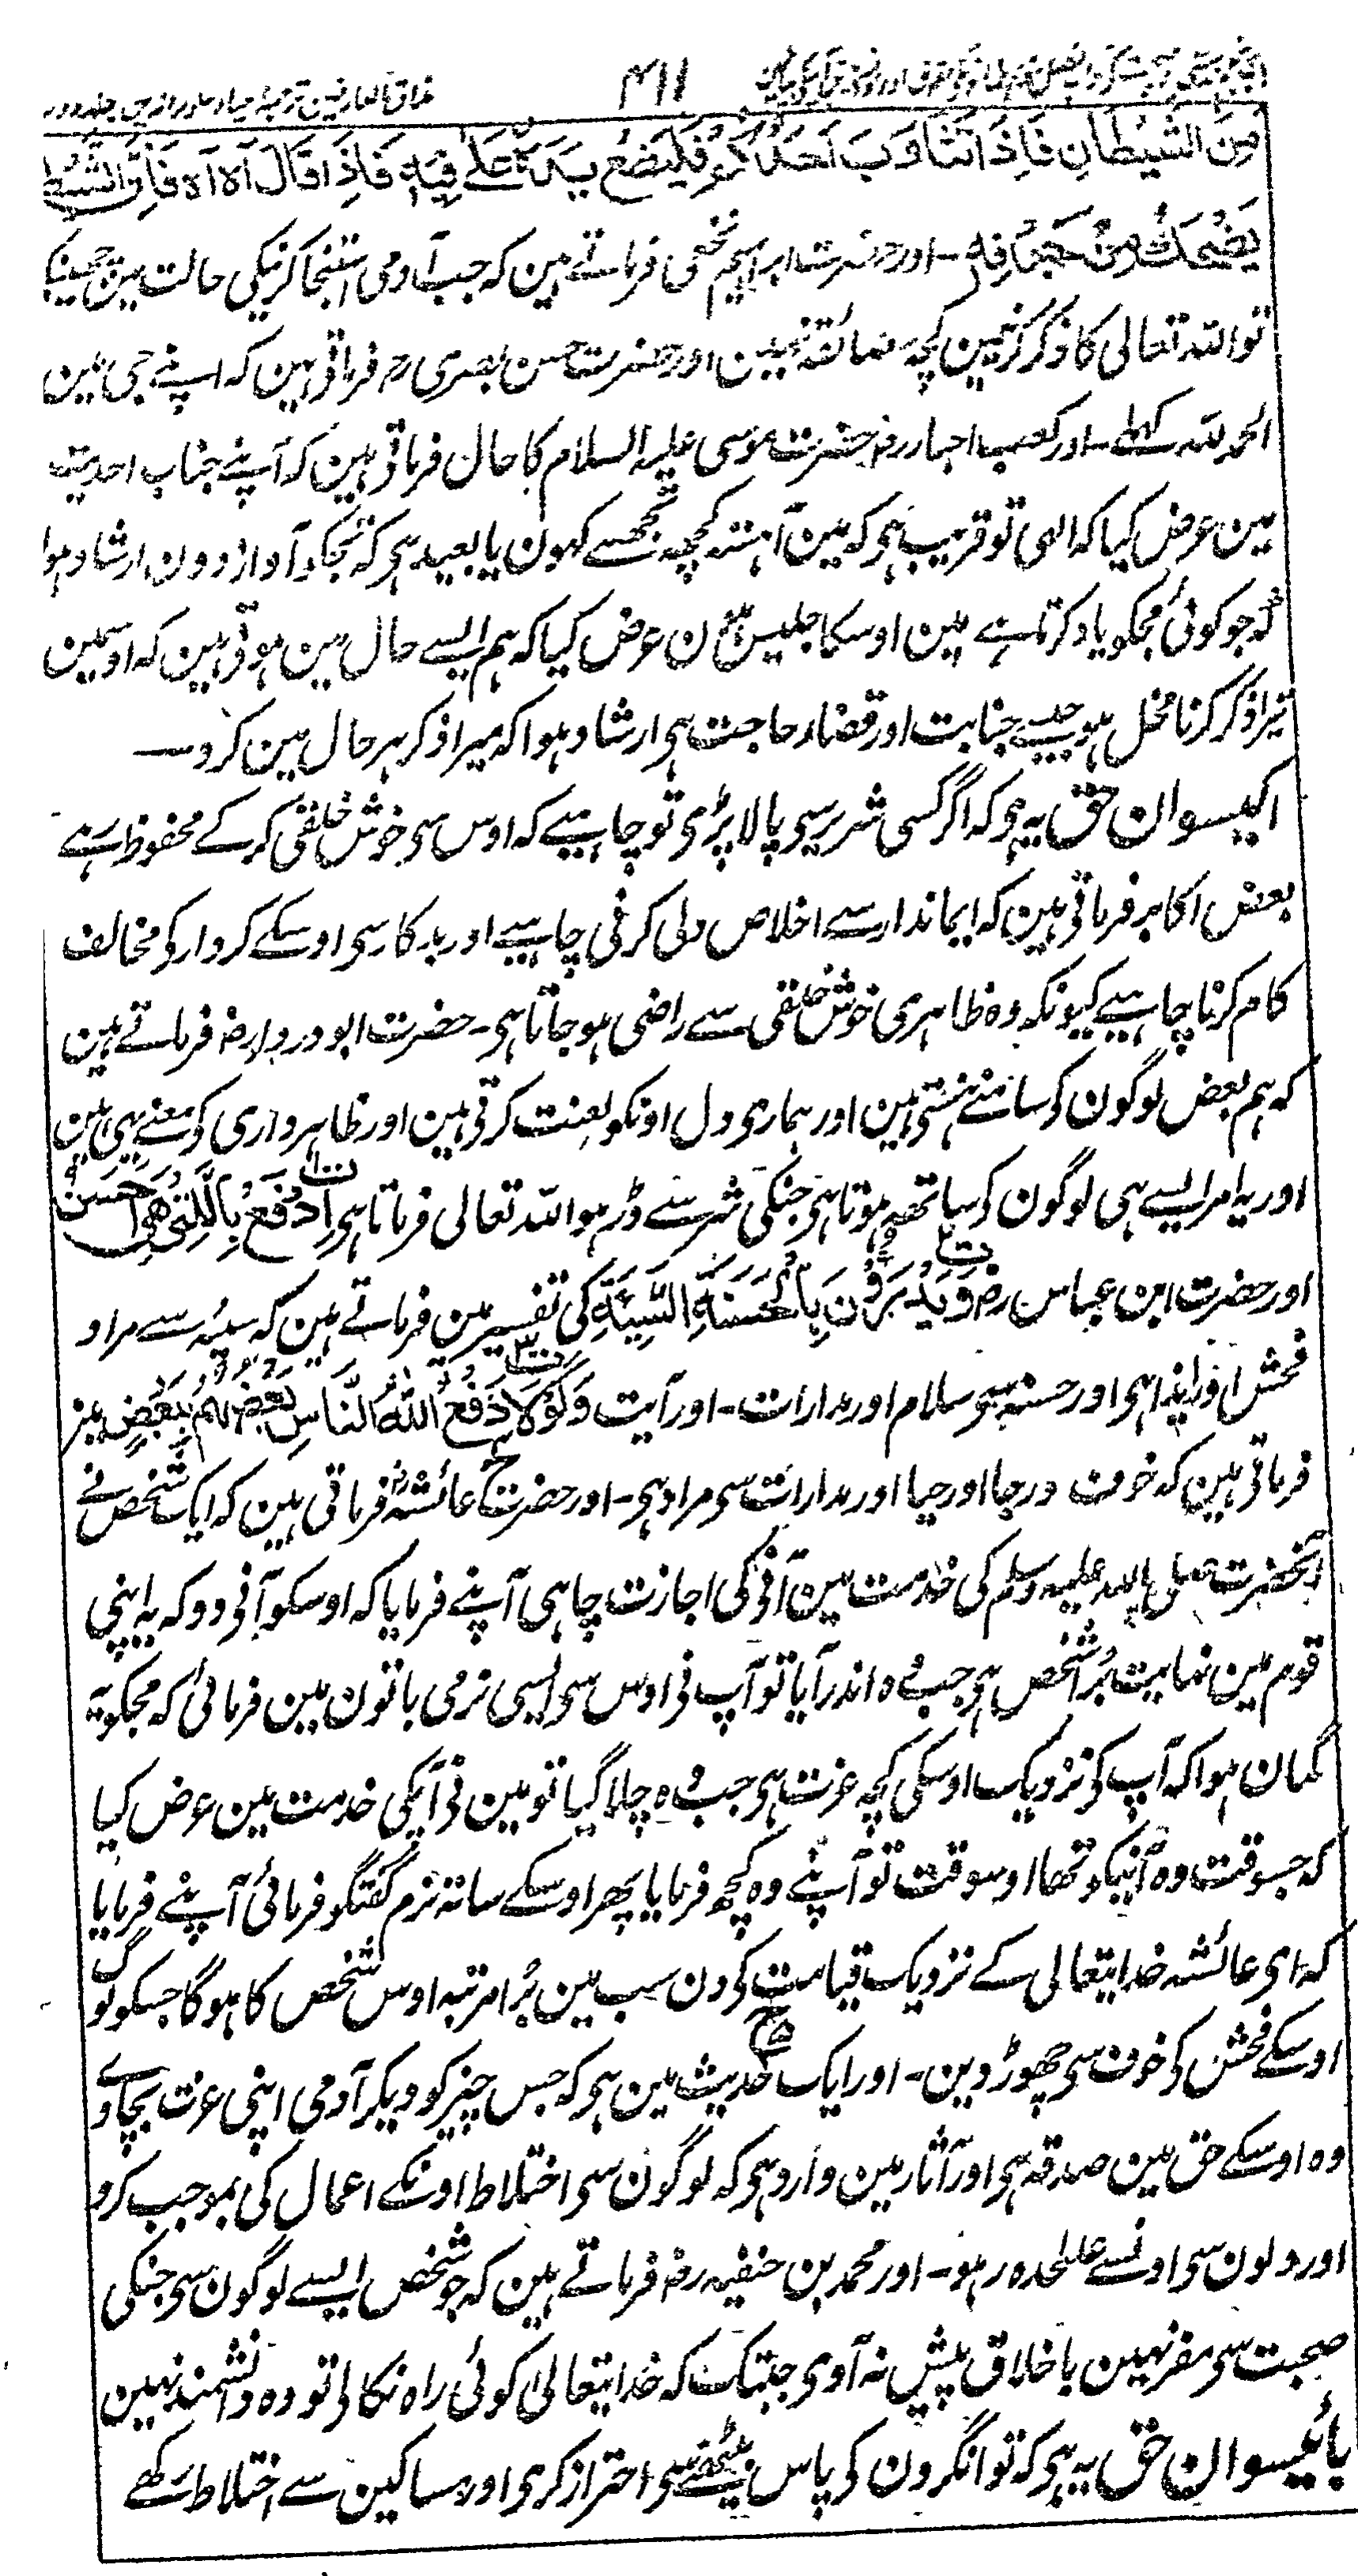 ۴۱۱ مذاق العارفین ترجمۂ احیاء علوم الدین جلد دوم
مِنَ الشَّیْطَانِ فَاِذَا تَثَاوَبَ اَحَدُکُمْ فَلْیَضَعْ یَدَہٗ عَلٰی فِیْہِ فَاِذَا قَالَ آہ آہ فَاِنَّ الشَّیْطٰ
یَضْحَکُ مِنْ جَوْفِہٖ ۔ اور حضرت ابراہیم نخعی فرماتے ہین کہ جب آدمی استنجا کرنیکی حالت مین چھینکے
تو اللہ تعالی کا ذکر کرنیمین کچھ مضائقہ نہین اور حضرت حسن بصری رح فرماتی ہین کہ اپنے جی مین
الحمد للہ کہلے ۔ اور کعب احبار رض حضرت موسی علیہ السلام کا حال فرماتی ہین کہ آپنے جناب احدیت
مین عرض کیا کہ الٰہی تو قریب ہی کہ مین آہستہ کچھ تجھسے کہون یا بعید ہی کہ تجکو آواز دون ارشاد ہوا
کہ جو کوئی مجکو یاد کرتا ہے مین اوسکا جلیس ہون عرض کیا کہ ہم ایسے حال مین ہوتی ہین کہ اوسمین
تیرا ذکر کرنا مخل ہو جیسے جنابت اور قضاء حاجت ہی ارشاد ہوا کہ میرا ذکر ہر حال مین کرو ۔
اکیسوان حق یہ ہی کہ اگر کسی شریر سی پالا پڑی تو چاہیے کہ اوس سی خوش خلقی کر کے محفوظ رہے
بعض اکابر فرماتی ہین کہ ایماندار سے اخلاص دلی کرنی چاہیے اور بدکار سی اوسکے کردار کی مخالف
کام کرنا چاہیے کیونکہ وہ ظاہری خوش خلقی سے راضی ہو جاتا ہی ۔ حضرت ابو درداء رض فرماتے ہین
کہ ہم بعض لوگون کی سامنے ہنستی ہین اور ہماری دل اونکو لعنت کرتی ہین اور ظاہرداری کی معنے یہی ہین
اور یہ امر ایسے ہی لوگون کی ساتھہ ہوتا ہی جنکی شر سے ڈر ہو اللہ تعالی فرماتا ہی اِدْفَعْ بِالَّتِیْ ھِیَ اَحْسَنُ
اور حضرت ابن عباس رض وَیَدْرَؤُنَ بِالْحَسَنَةِ السَّیِّئَةَ کی تفسیر مین فرماتے ہین کہ سیئہ سے مراد
فحش اور ایذا ہی اور حسنہ سی سلام اور مدارات ۔ اور آیت وَلَوْلَا دَفْعُ اللّٰہِ النَّاسَ بَعْضَہُمْ بِبَعْضٍ مین
فرماتی ہین کہ خوف و رجا اور حیا اور مدارات سی مراد ہی ۔ اور حضرت عائشہ رض فرماتی ہین کہ ایک شخص نے
آنحضرت صلی اللہ علیہ وسلم کی خدمت مین آنی کی اجازت چاہی آپنے فرمایا کہ اوسکو آنی دو کہ یہ اپنی
قوم مین نہایت بُرا شخص ہی جب وہ اندر آیا تو آپ نی اوس سی ایسی نرمی باتون مین فرمائی کہ مجکو یہ
گمان ہوا کہ آپ کی نزدیک اوسکی کچھ عزت ہی جب وہ چلا گیا تو مین نی آپکی خدمت مین عرض کیا
کہ جسوقت وہ آنیکو تھا اوسوقت تو آپنے وہ کچھ فرمایا پھر اوسکے ساتہ نرم گفتگو فرمائی آپنے فرمایا
کہ ای عائشہ خدایتعالی کے نزدیک قیامت کی دن سب مین بُرا مرتبہ اوس شخص کا ہوگا جسکو لوگ
اوسکے فحش کی خوف سی چھوڑ دین ۔ اور ایک حدیث مین ہی کہ جس چیز کو دیکر آدمی اپنی عزت بچاوے
وہ اوسکے حق مین صدقہ ہی اور آثار مین وارد ہی کہ لوگون سی اختلاط اونکے اعمال کی بموجب کرو
اور دلون سی اونسے علیٰحدہ رہو ۔ اور محمد بن حنفیہ رض فرماتے ہین کہ جو شخص ایسے لوگون سی جنکی
صحبت سی مفر نہین باخلاق پیش نہ آوی جبتک کہ خدایتعالیٰ کوئی راہ نکالی تو وہ دانشمند نہین
بائیسوان حق یہ ہی کہ توانگرون کی پاس بیٹھنے سی احتراز کری اور مساکین سے اختلاط رکھے